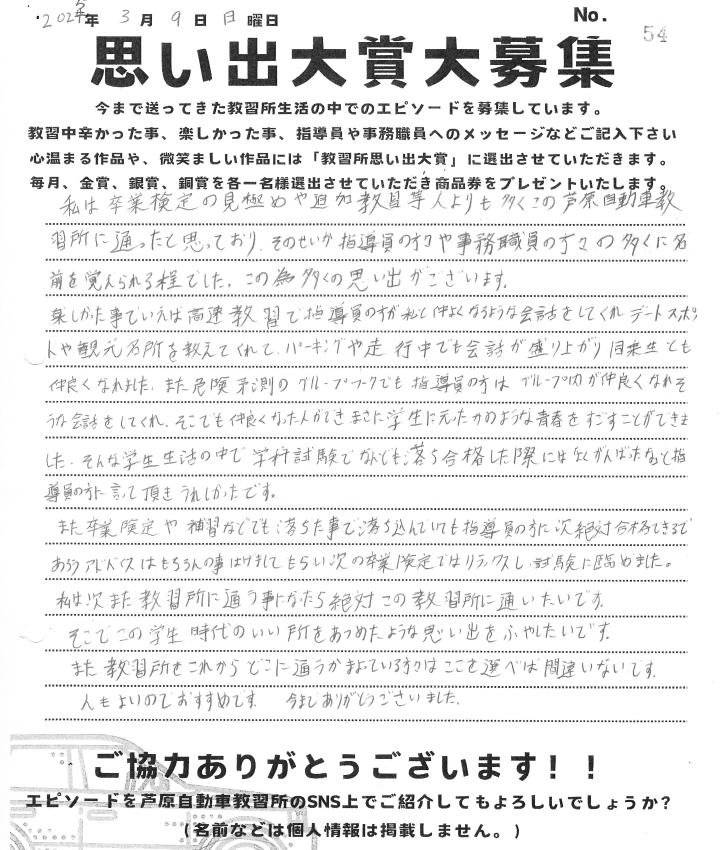 2025年 3月 9日 日曜日 No. 54
思い出大賞大募集
今まで送ってきた教習所生活の中でのエピソードを募集しています。
教習中辛かった事、楽しかった事、指導員や事務職員へのメッセージなどご記入下さい
心温まる作品や、微笑ましい作品には「教習所思い出大賞」に選出させていただきます。
毎月、金賞、銀賞、銅賞を各一名様選出させていただき商品券をプレゼントいたします。
私は卒業検定の見極めや追加教習等人よりも多くこの芦原自動車教
習所に通ったと思っており、そのせいか指導員の方々や事務職員の方々の多くに名
前を覚えられる程でした。この為多くの思い出がございます。
楽しかった事でいえば高速教習で指導員の方が私と仲よくなるような会話をしてくれ デートスポッ
トや観光名所を教えてくれて、パーキングや走行中でも会話が盛り上がり同乗生とも
仲良くなれました。また危険予測のグループワークでも指導員の方は グループ内が仲良くなれそ
うな会話をしてくれ、そこでも仲良くなった人ができまさに学生に元たかのような青春をすごすことができま
した。そんな学生生活の中で学科試験でなんども落ち合格した際には良くがんばったねと指
導員の方に言って頂きうれしかったです。
また卒業検定や補習などでも落ちた事で落ち込んでいても指導員の方に次絶対合格できるで
あろうアドバイスはもちろんの事はげましてもらい次の卒業検定ではリラックスし、試験に臨めました。
私は次また教習所に通う事になったら絶対この教習所に通いたいです。
そこでこの学生時代のいい所をあつめたような思い出をふやしたいです。
また教習所をこれからどこに通うかまよっている方々はここを選べば間違いないです。
人もよいのでおすすめです。 今までありがとうございました。
ご協力ありがとうございます！！
エピソードを芦原自動車教習所のSNS上でご紹介してもよろしいでしょうか？
（名前などは個人情報は掲載しません。）